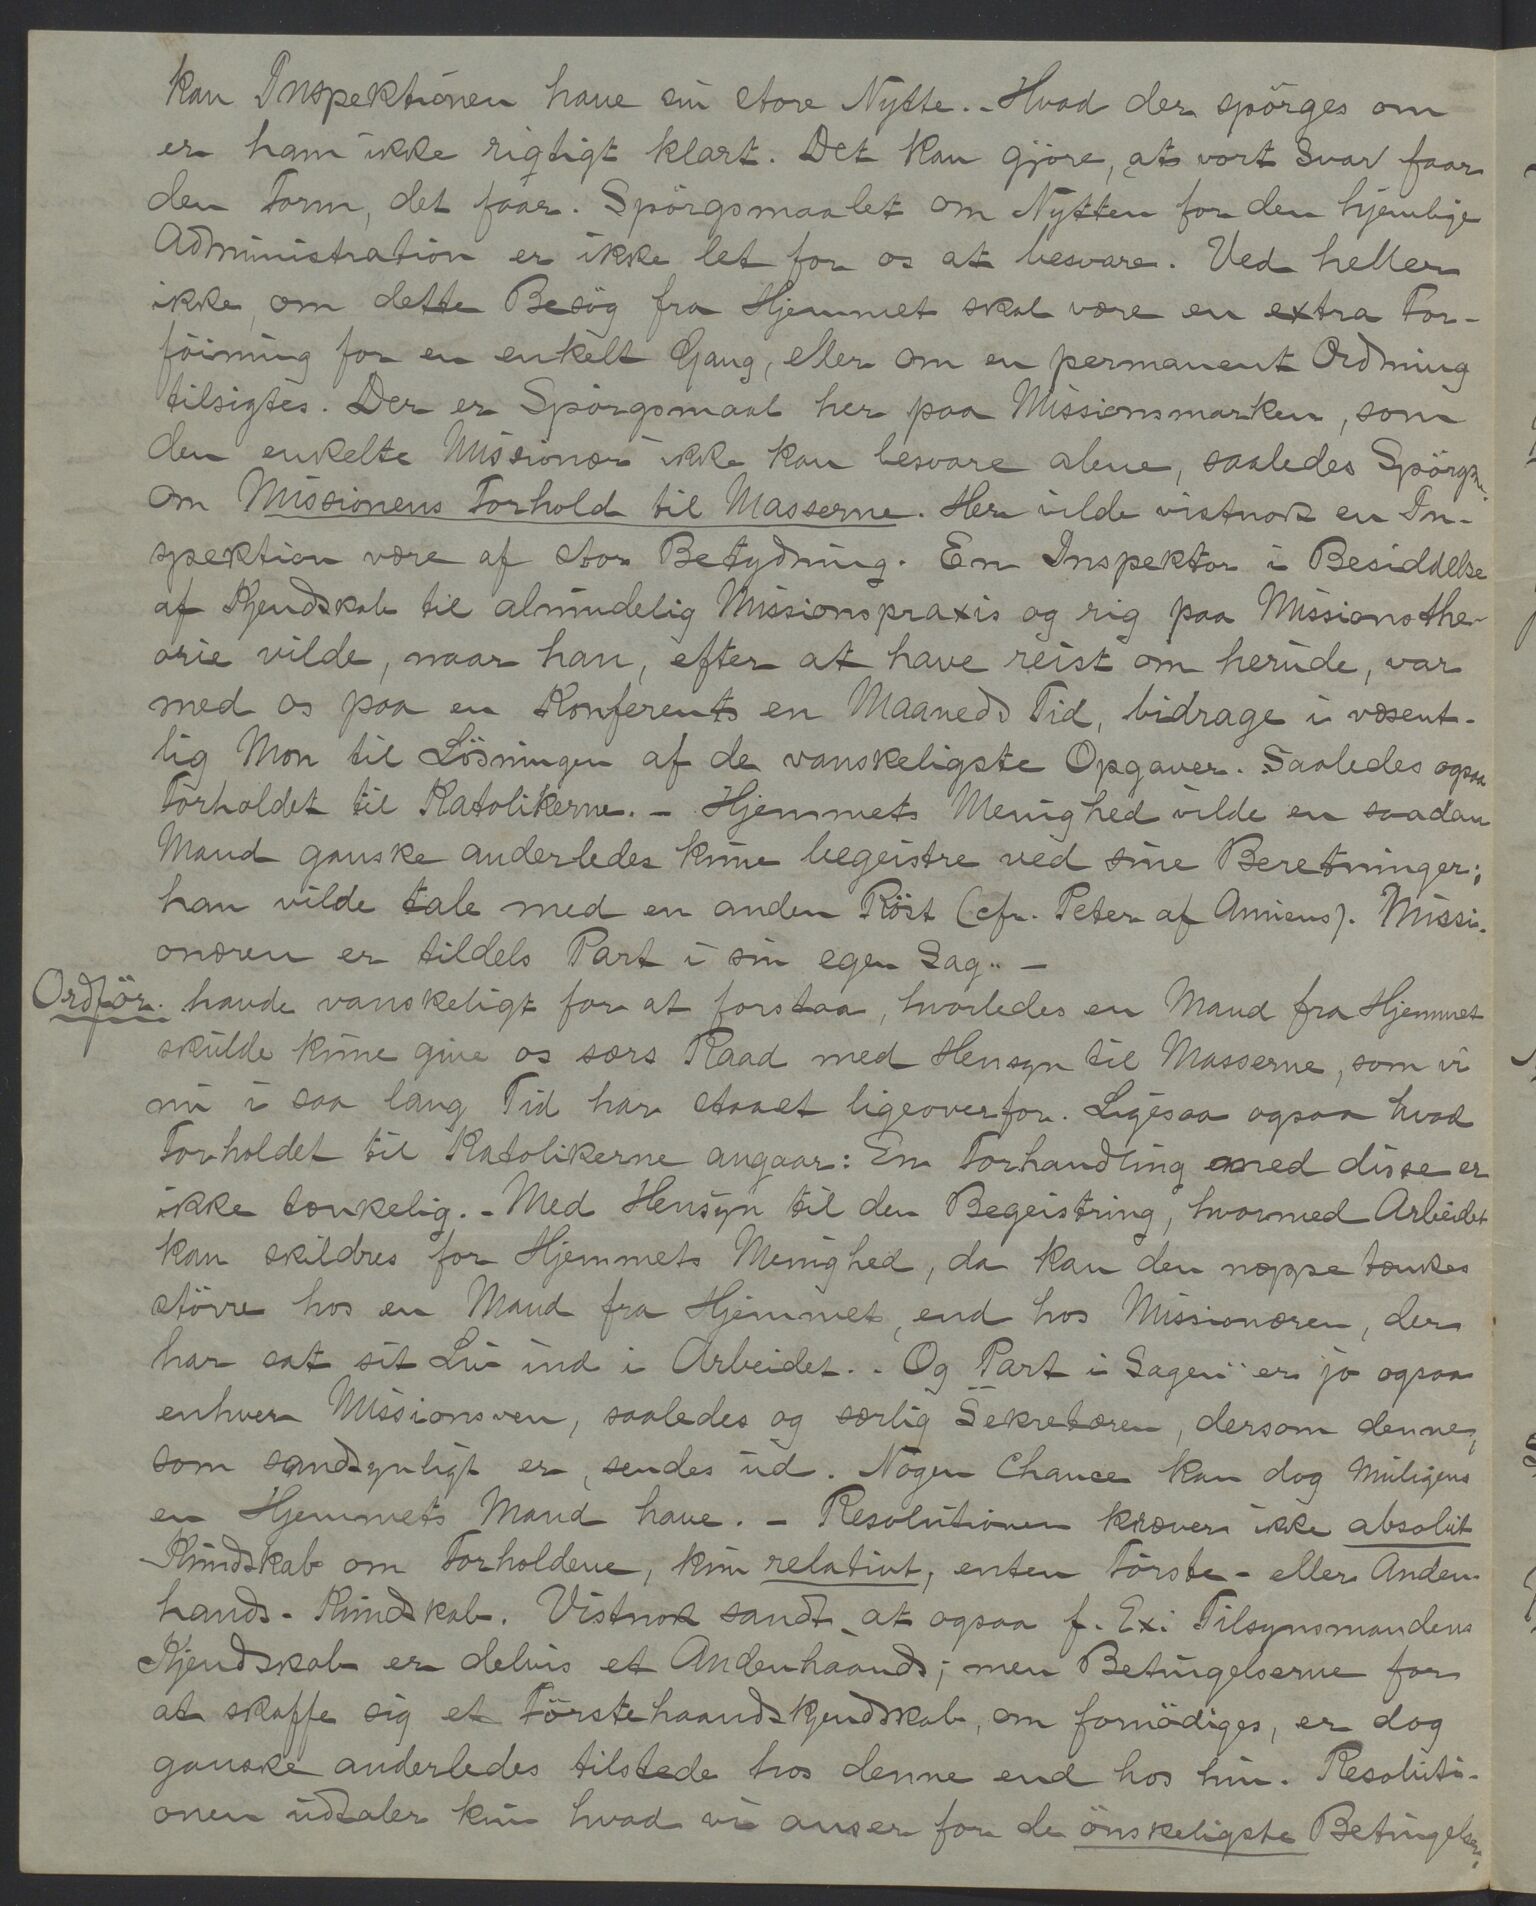 kan Inspektionen have sin store Nytte. - Hvad der spörges om
er ham ikke rigtigt klart. Det kan gjöre, at vort Svar faar
den Form, det faar. Spörgsmaalet om Nytten for den hjemlige
Administration er ikke let for os at besvare. Ved heller
ikke, om dette Besög fra Hjemmet skal være en extra For-
föining for en enkelt Gang, eller om en permanent Ordning
tilsigtes. Der er Spörgsmaal her paa Missionsmarken, som
den enkelte Missionær ikke kan besvare alene, saaledes Spörgsm.
om Missionens Forhold til Masserne. Her vilde vistnok en In-
spektion være af stor Betydning. En Inspektor i Besiddelse
af Kjendskab til almindelig Missionspraxis og rig paa Missionsthe-
orie vilde, naar han, efter at have reist om herude, var
med os paa en Konferents en Maaneds Tid, bidrage i væsent-
lig Mon til Lösningen af de vanskeligste Opgaver. Saaledes ogsaa
Forholdet til Katolikerne. - Hjemmets Menighed vilde en saadan
Mand ganske anderledes kune begeistre ved sine Beretninger;
han vilde tale med en anden Röst (cfr. Peter af Amiens). Missi-
onæren er tildels Part i sin egen Sag.. -
Ordför. havde vanskeligt for at forstaa, hvorledes en Mand fra Hjemmet
skulde kune give os særs Raad med Hensyn til Masserne, som vi
nu i saa lang Tid har staaet ligeoverfor. Ligesaa ogsaa hvad
Forholdet til Katolikerne angaar: En Forhandling med disse er
ikke tænkelig. - Med Hensyn til den Begeistring, hvormed Arbeidet
kan skildres for Hjemmets Menighed, da kan den næppe tænkes
större hos en Mand fra Hjemmet, end hos Missionæren, der
har sat sit Liv ind i Arbeidet. - Og Part i Sagen" er jo ogsaa
enhver Missionsven, saaledes og særlig Sekretæren, dersom denne,
som sandsynligt er, sendes ud. Nogen Chance kan dog muligens
en Hjemmets Mand have. - Resolutionen kræver ikke absolut
Kundskab om Forholdene, kun relativt, enten Förste- eller Anden-
hands-Kundskab. Vistnok sandt at ogsaa f. Ex. Tilsynsmandens
Kjendskab er delvis et Andenhaands; men Betingelserne for
at skaffe sig et Förstehaandskjendskab, om fornödiges, er dog
ganske anderledes tilstede hos denne end hos hin. Resoluti-
onen udtaler kun hvad vi anser for de önskeligste Betingelser,